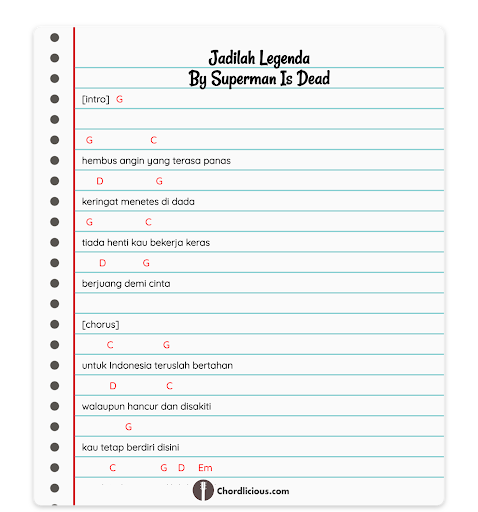 Jadilah Legenda
By Superman Is Dead
[intro] G
G C
hembus angin yang terasa panas
D G
keringat menetes di dada
G C
tiada henti kau bekerja keras
D G
berjuang demi cinta
[chorus]
C G
untuk Indonesia teruslah bertahan
D C
walaupun hancur dan disakiti
G
kau tetap berdiri disini
C G D Em
Chordlicious.com